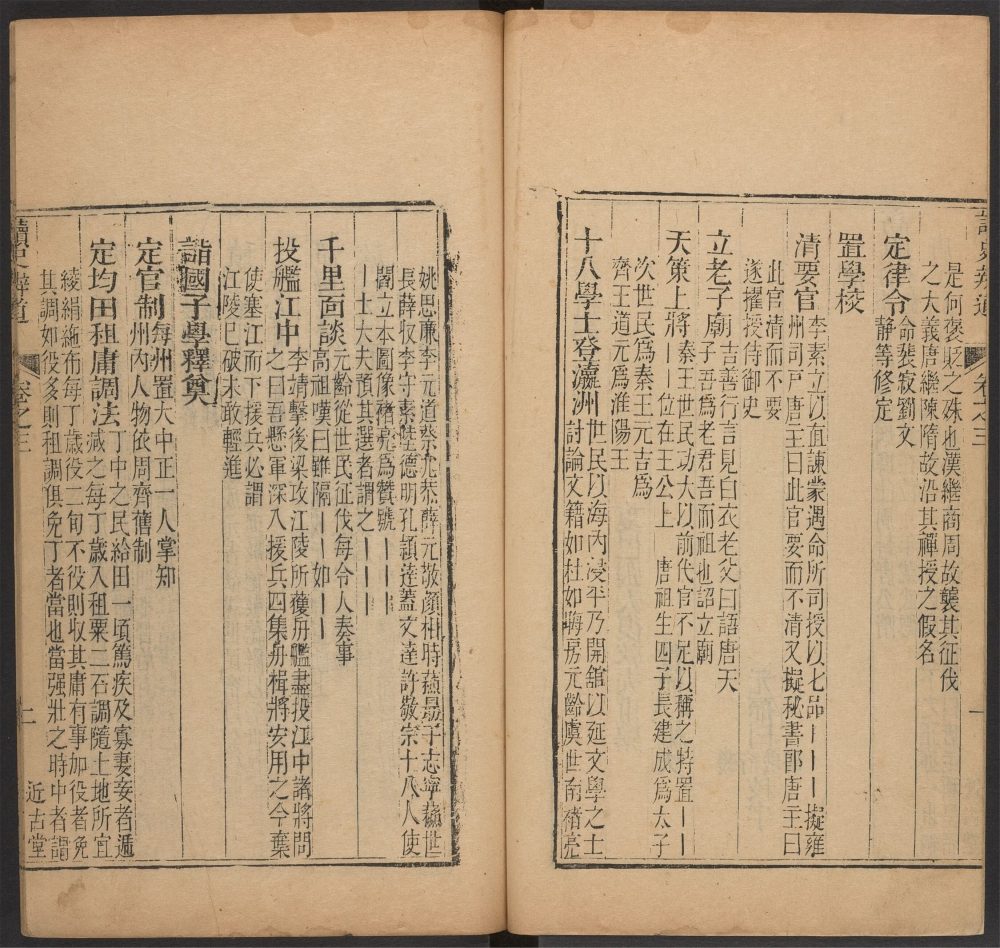 讀史辨道 卷之三 一
是何褒貶之殊也漢繼商周故襲其征伐
之大義唐繼陳隋故沿其禪授之假名
定律令
命裴寂劉文
靜等修定
置學校
清要官
李素立以直諫蒙遇命所司授以七品丨丨丨擬雍
州司戶唐主曰此官要而不清又擬秘書郎唐主曰
此官清而不要
遂擢授侍御史
立老子廟
吉善行言見白衣老父曰語唐天
子吾爲老君吾而祖也詔立廟
天策上將
秦王世民功大以前代官不足以稱之特置丨丨
丨丨位在王公上 唐祖生四子長建成爲太子
次世民爲秦王元吉爲
齊王道元爲淮陽王
十八學士登瀛洲
世民以海內浸平乃開舘以延文學之士
討論文籍如杜如晦房元齡虞世南褚亮
姚思廉李元道蔡允恭薛元敬顏相時蘇勗于志寧蘇世
長薛收李守素陸德明孔頴達蓋文達許敬宗十八人使
閻立本圖像褚亮爲贊號丨丨丨
丨士大夫預其選者謂之丨丨丨
千里面談
元齡從世民征伐每令人奏事
高祖嘆曰雖隔丨丨如丨丨
投艦江中
李靖擊後梁攻江陵所獲舟艦盡投江中諸將問
之曰吾懸軍深入援兵四集舟楫將安用之今棄
使塞江而下援兵必謂
江陵已破未敢輕進
詣國子學釋奠
定官制
每州置大中正一人掌知
州內人物依周齊舊制
定均田租庸調法
丁中之民給田一頃篤疾及寡妻妾者遞
減之每丁歲入租粟二石調隨土地所宜
綾絹絁布每丁歲役二旬不役則收其庸有事加役者免
其調如役多則租調俱免丁者當也當强壯之時中者謂
讀史辨道 卷之三 二 近古堂